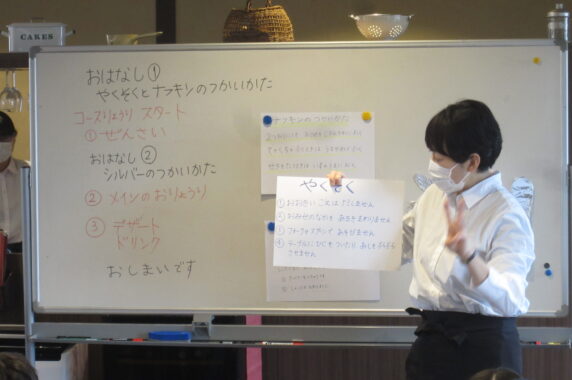 CAKES
おはなし①
やくそくとナフキンのつかいかた
コースりょうり スタート
①ぜんさい
おはなし②
シルバーのつかいかた
②メインのおりょうり
③デザート
ドリンク
おしまいです
ナフキンのつかいかた
やくそく
①おおきい こえは だしません
②おみせのなかを あるきまわりません
③フォークやスプーンで あそびません
④テーブルにひじをついたり あしをぶらぶら
させません